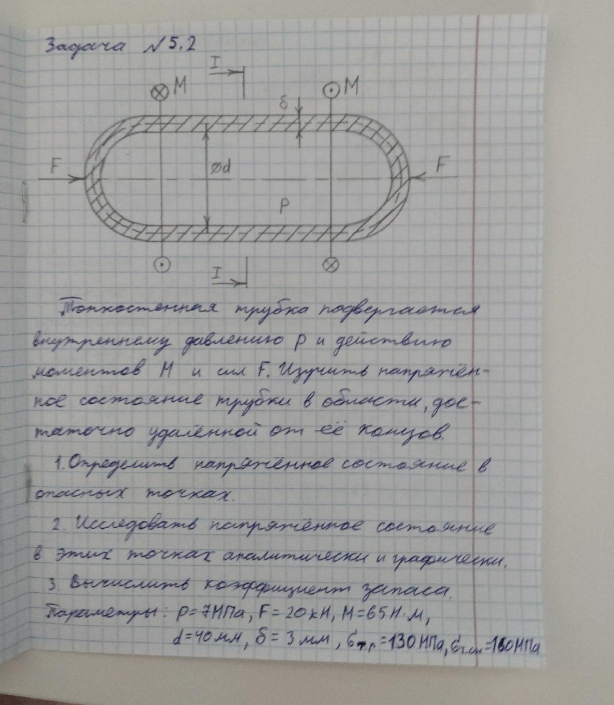 Задача №5.2
I
M
M
δ
F
⌀d
F
P
I
Тонкостенная трубка подвергается
внутреннему давлению P и действию
моментов M и сил F. Изучить напряжён-
ное состояние трубки в области, дос-
таточно удалённой от её концов.
1. Определить напряжённое состояние в
опасных точках.
2. Исследовать напряжённое состояние
в этих точках аналитически и графически.
3. Вычислить коэффициент запаса.
Параметры: P=7МПа, F=20кН, M=65Н·м,
d=40мм, δ=3мм, σт.р=130МПа, σт.сж=160МПа